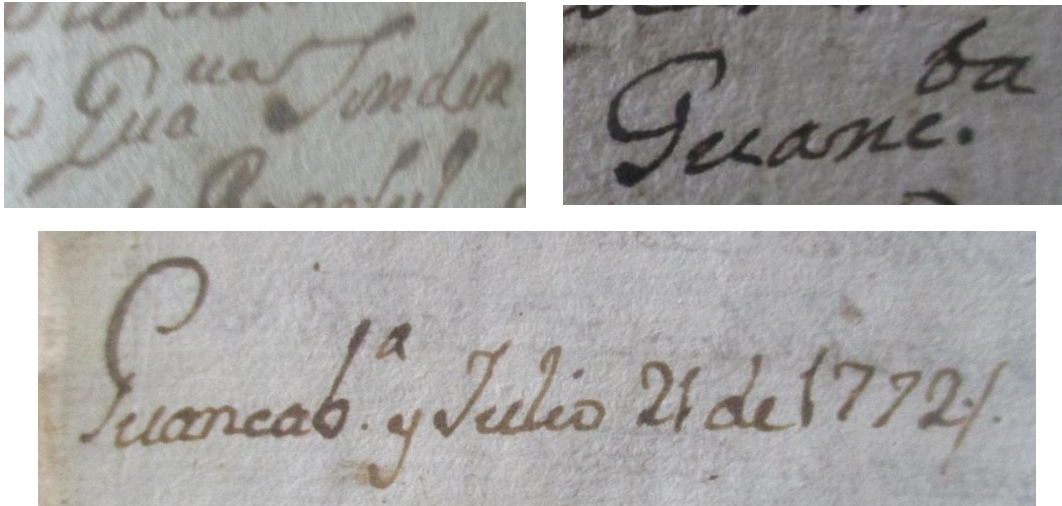 Gua^ua Jondor
Guanc.^ba
Guancab.^a y Julio 21 de 1772/.